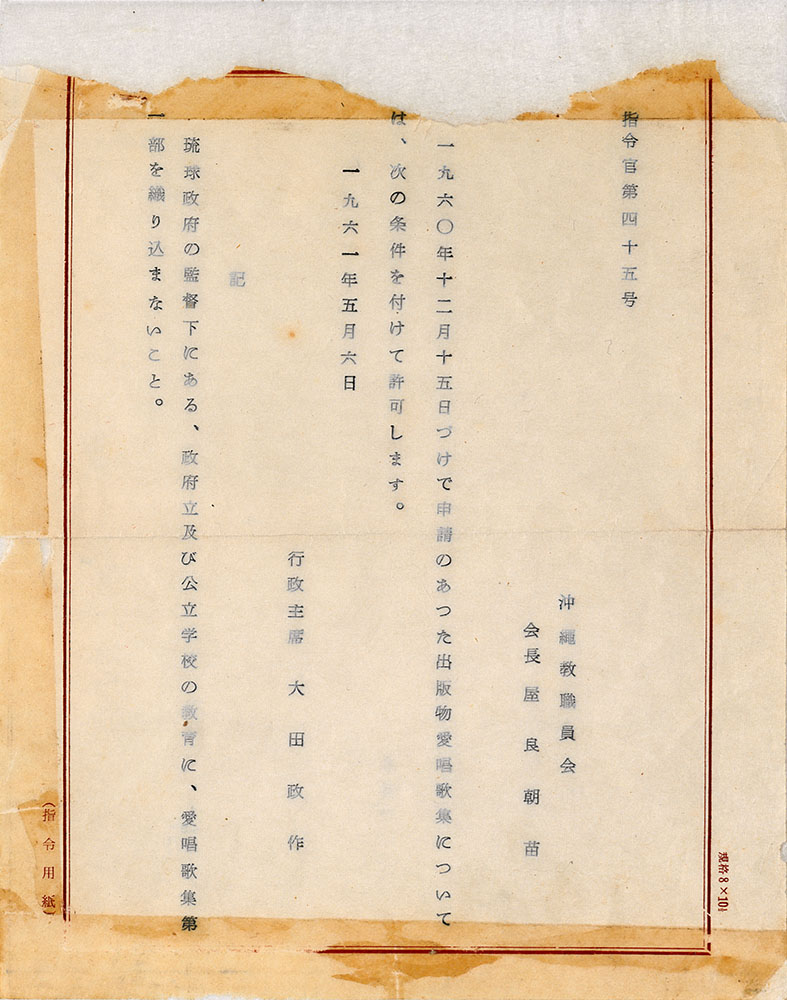 指令官第四十五号
沖縄教職員会
会長屋良朝苗
一九六〇年十二月十五日づけで申請のあつた出版物愛唱歌集について
は、次の条件を付けて許可します。
一九六一年五月六日
行政主席 大田政作
記
琉球政府の監督下にある、政府立及び公立学校の教育に、愛唱歌集第
一部を織り込まないこと。
(指令用紙)
規格8×10½